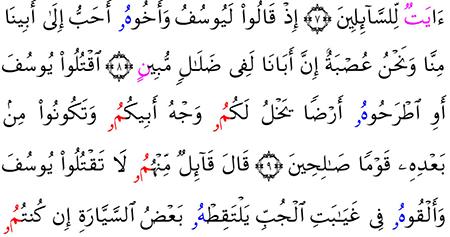 ءَايَتٌ لِّلسَّآئِلِينَ ﴿٧﴾ إِذْ قَالُواْ لَيُوسُفُ وَأَخُوهُۥ أَحَبُّ إِلَىٰ أَبِينَا
مِنَّا وَنَحْنُ عُصْبَةٌ إِنَّ أَبَانَا لَفِى ضَلَٰلٍ مُّبِينٍ ﴿٨﴾ ٱقْتُلُواْ يُوسُفَ
أَوِ ٱطْرَحُوهُۥ أَرْضًا يَخْلُ لَكُمُۥ وَجْهُ أَبِيكُمُۥ وَتَكُونُواْ مِنۢ
بَعْدِهِۦ قَوْمًا صَٰلِحِينَ ﴿٩﴾ قَالَ قَآئِلٌ مِّنْهُمُۥ لَا تَقْتُلُواْ يُوسُفَ
وَأَلْقُوهُۥ فِى غَيَٰبَتِ ٱلْجُبِّ يَلْتَقِطْهُۥ بَعْضُ ٱلسَّيَّارَةِ إِن كُنتُمُۥ